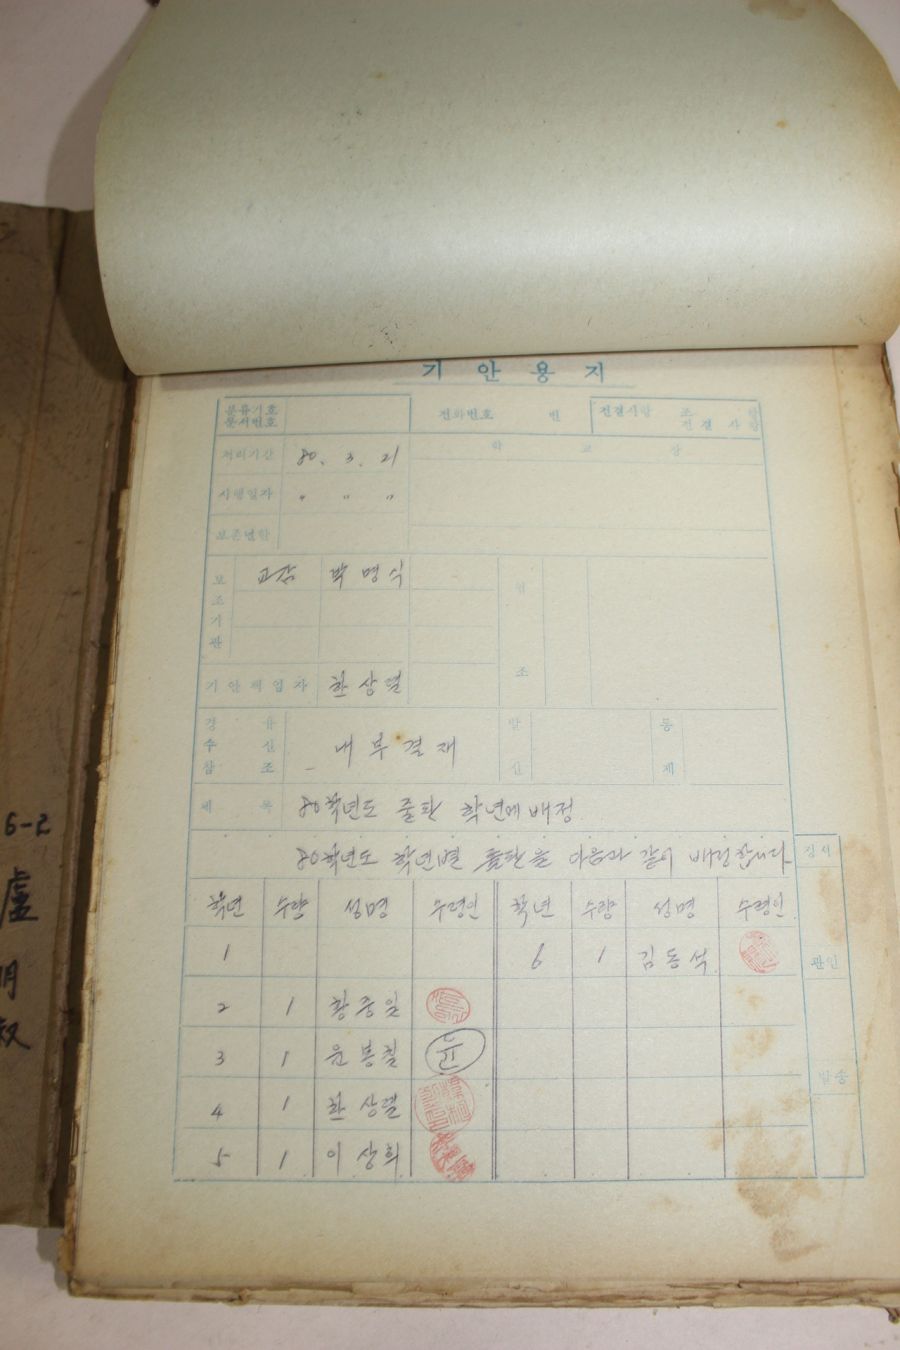 기안용지
분류기호
문서번호
전화번호 번
전결사항 조 항
전결사항
처리기간 80. 3. 21
학교장
시행일자 〃 〃 〃
보존년한
보조기관 교감 박명식
협조
기안책임자 한상렬
경유
수신
참조
내부결재
발신
통제
제목 80학년도 줄판 학년에 배정
80학년도 학년별 줄판을 아음과 같이 배정합니다.
정서
학년 수량 성명 수령인 학년 수량 성명 수령인
1 6 1 김동석
관인
2 1 황중일
3 1 윤봉칠 윤
발송
4 1 한상렬
5 1 이상희
6-2
盧